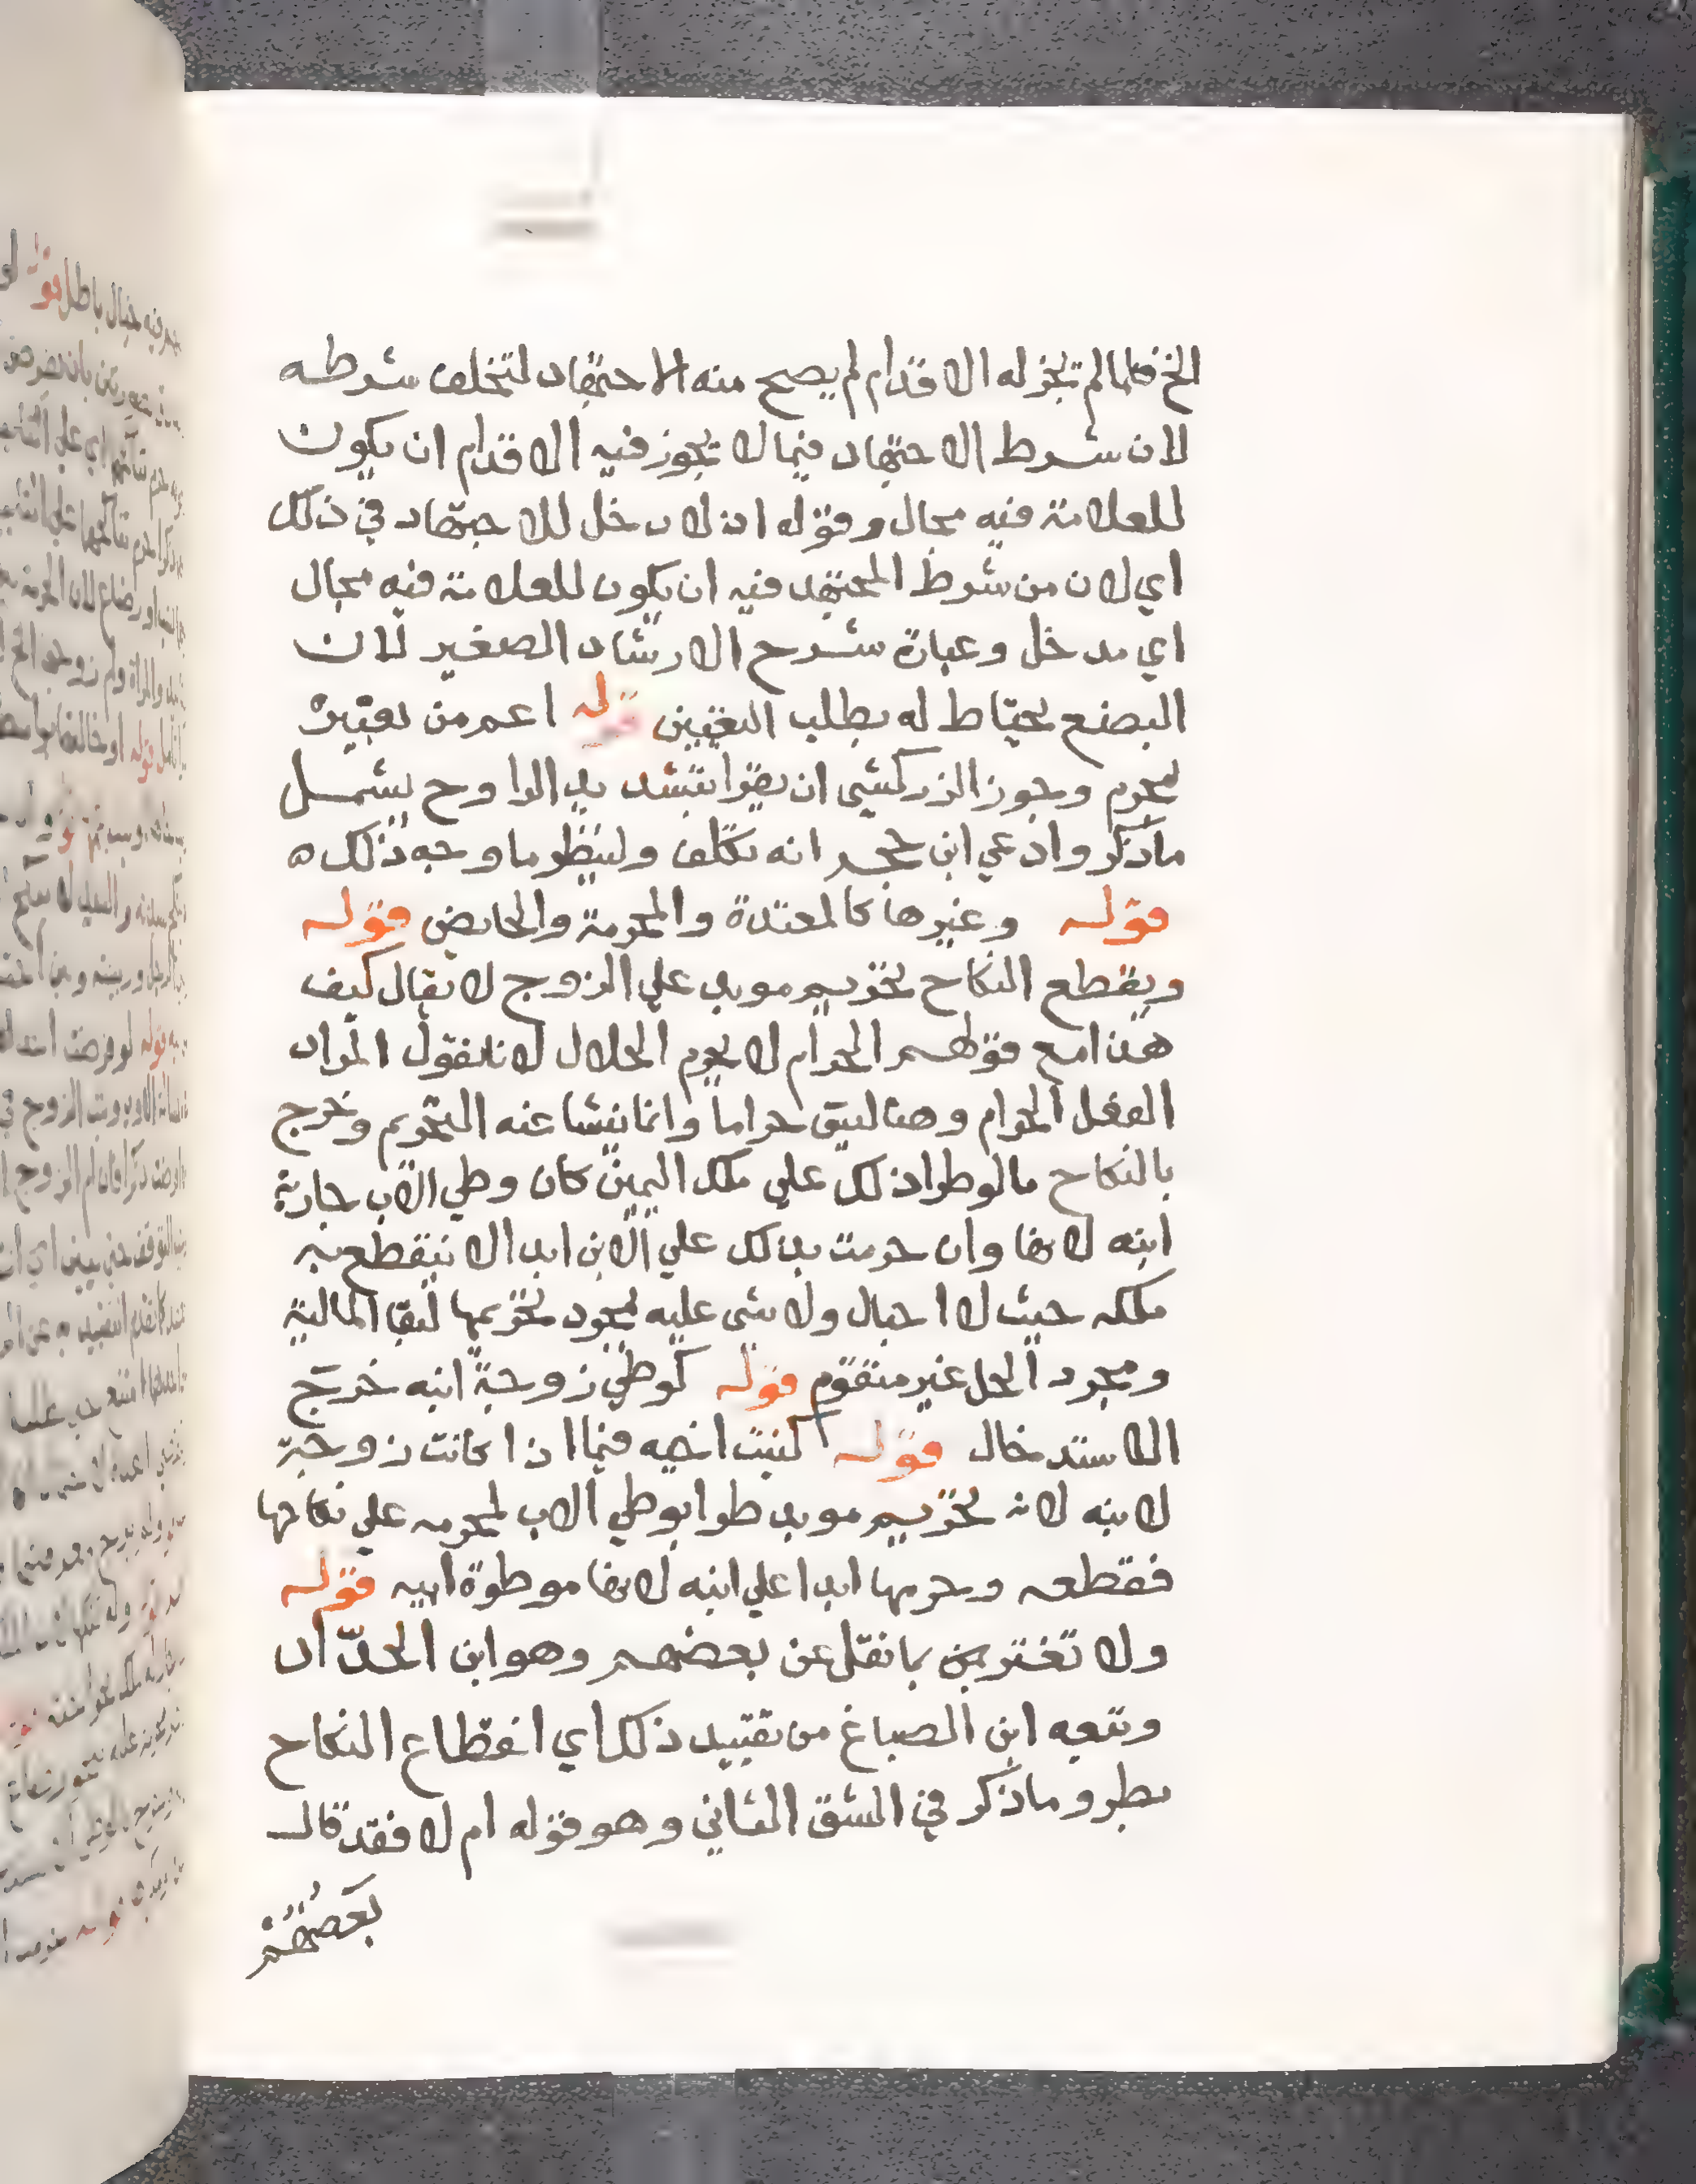 الخ فلما لم تجز له الاقدام لم يصح منه الاجتهاد لتخلف شرطه
لان شرط الاجتهاد فيما لا يجوز فيه الاقدام ان يكون
للعلامة فيه مجال وقوله اذ لا دخل للاجتهاد في ذلك
اي لان من شرط المجتهد فيه ان يكون للعلامة فيه مجال
اي مدخل وعبارة شرح الارشاد الصغير لان
البضع يحتاط له بطلب اليقين قوله اعم من تعبيره
بمحرم وجوز الزركشي ان يقرا بتشديد الرا وح يشمل
ماذكر وادعي ابن حجر انه تكلف ولينظر ما وجه ذلك ه
قوله وغيرها كالمعتدة والمحرمة والحايض قوله
ويقطع النكاح تحريم موبد علي الزوج لا يقال كيف
هذا مع قولهم الحرام لا يحرم الحلال لانا نقول المراد
الفعل الحرام وهنا ليس حراما وانما نشا عنه التحريم وخرج
بالنكاح ما لو طرا ذلك علي ملك اليمين كان وطي الاب جارية
ابنه لانها وان حرمت بذلك علي الابن ابدا لا ينقطع به
ملكه حيث لا احبال ولا شي عليه بمجرد تحريمها لبقا المالية
ومجرد الحل غير متقوم قوله كوطي زوجة ابنه خرج
الاستدخال قوله كبنت اخيه فيما اذا كانت زوجة
لابنه لانه تحريم موبد طرا بوطي الاب لمحرمه علي نكاحها
فقطعه وحرمها ابدا علي ابنه لانها موطوة ابيه قوله
ولا تغترين بما نقل عن بعضهم وهو ابن الحداد
وتبعه ابن الصباغ من تقييد ذلك اي انقطاع النكاح
بطرو ماذكر في الشق الثاني وهو قوله ام لا فقد قال
بعضهم